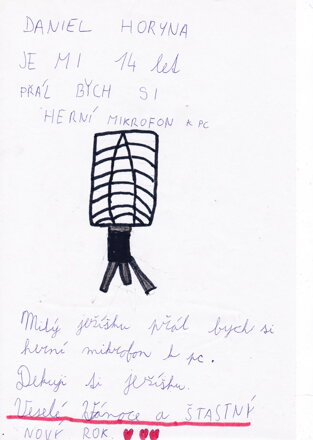 DANIEL HORYNA
JE MI 14 let
PŘÁL BYCH SI
HERNÍ MIKROFON K PC
Milý ježíšku přál bych si
herní mikrofon k pc.
Dekuji ti Ježíšku.
Veselé Vánoce a ŠTASTNÝ
NOVÝ ROK.